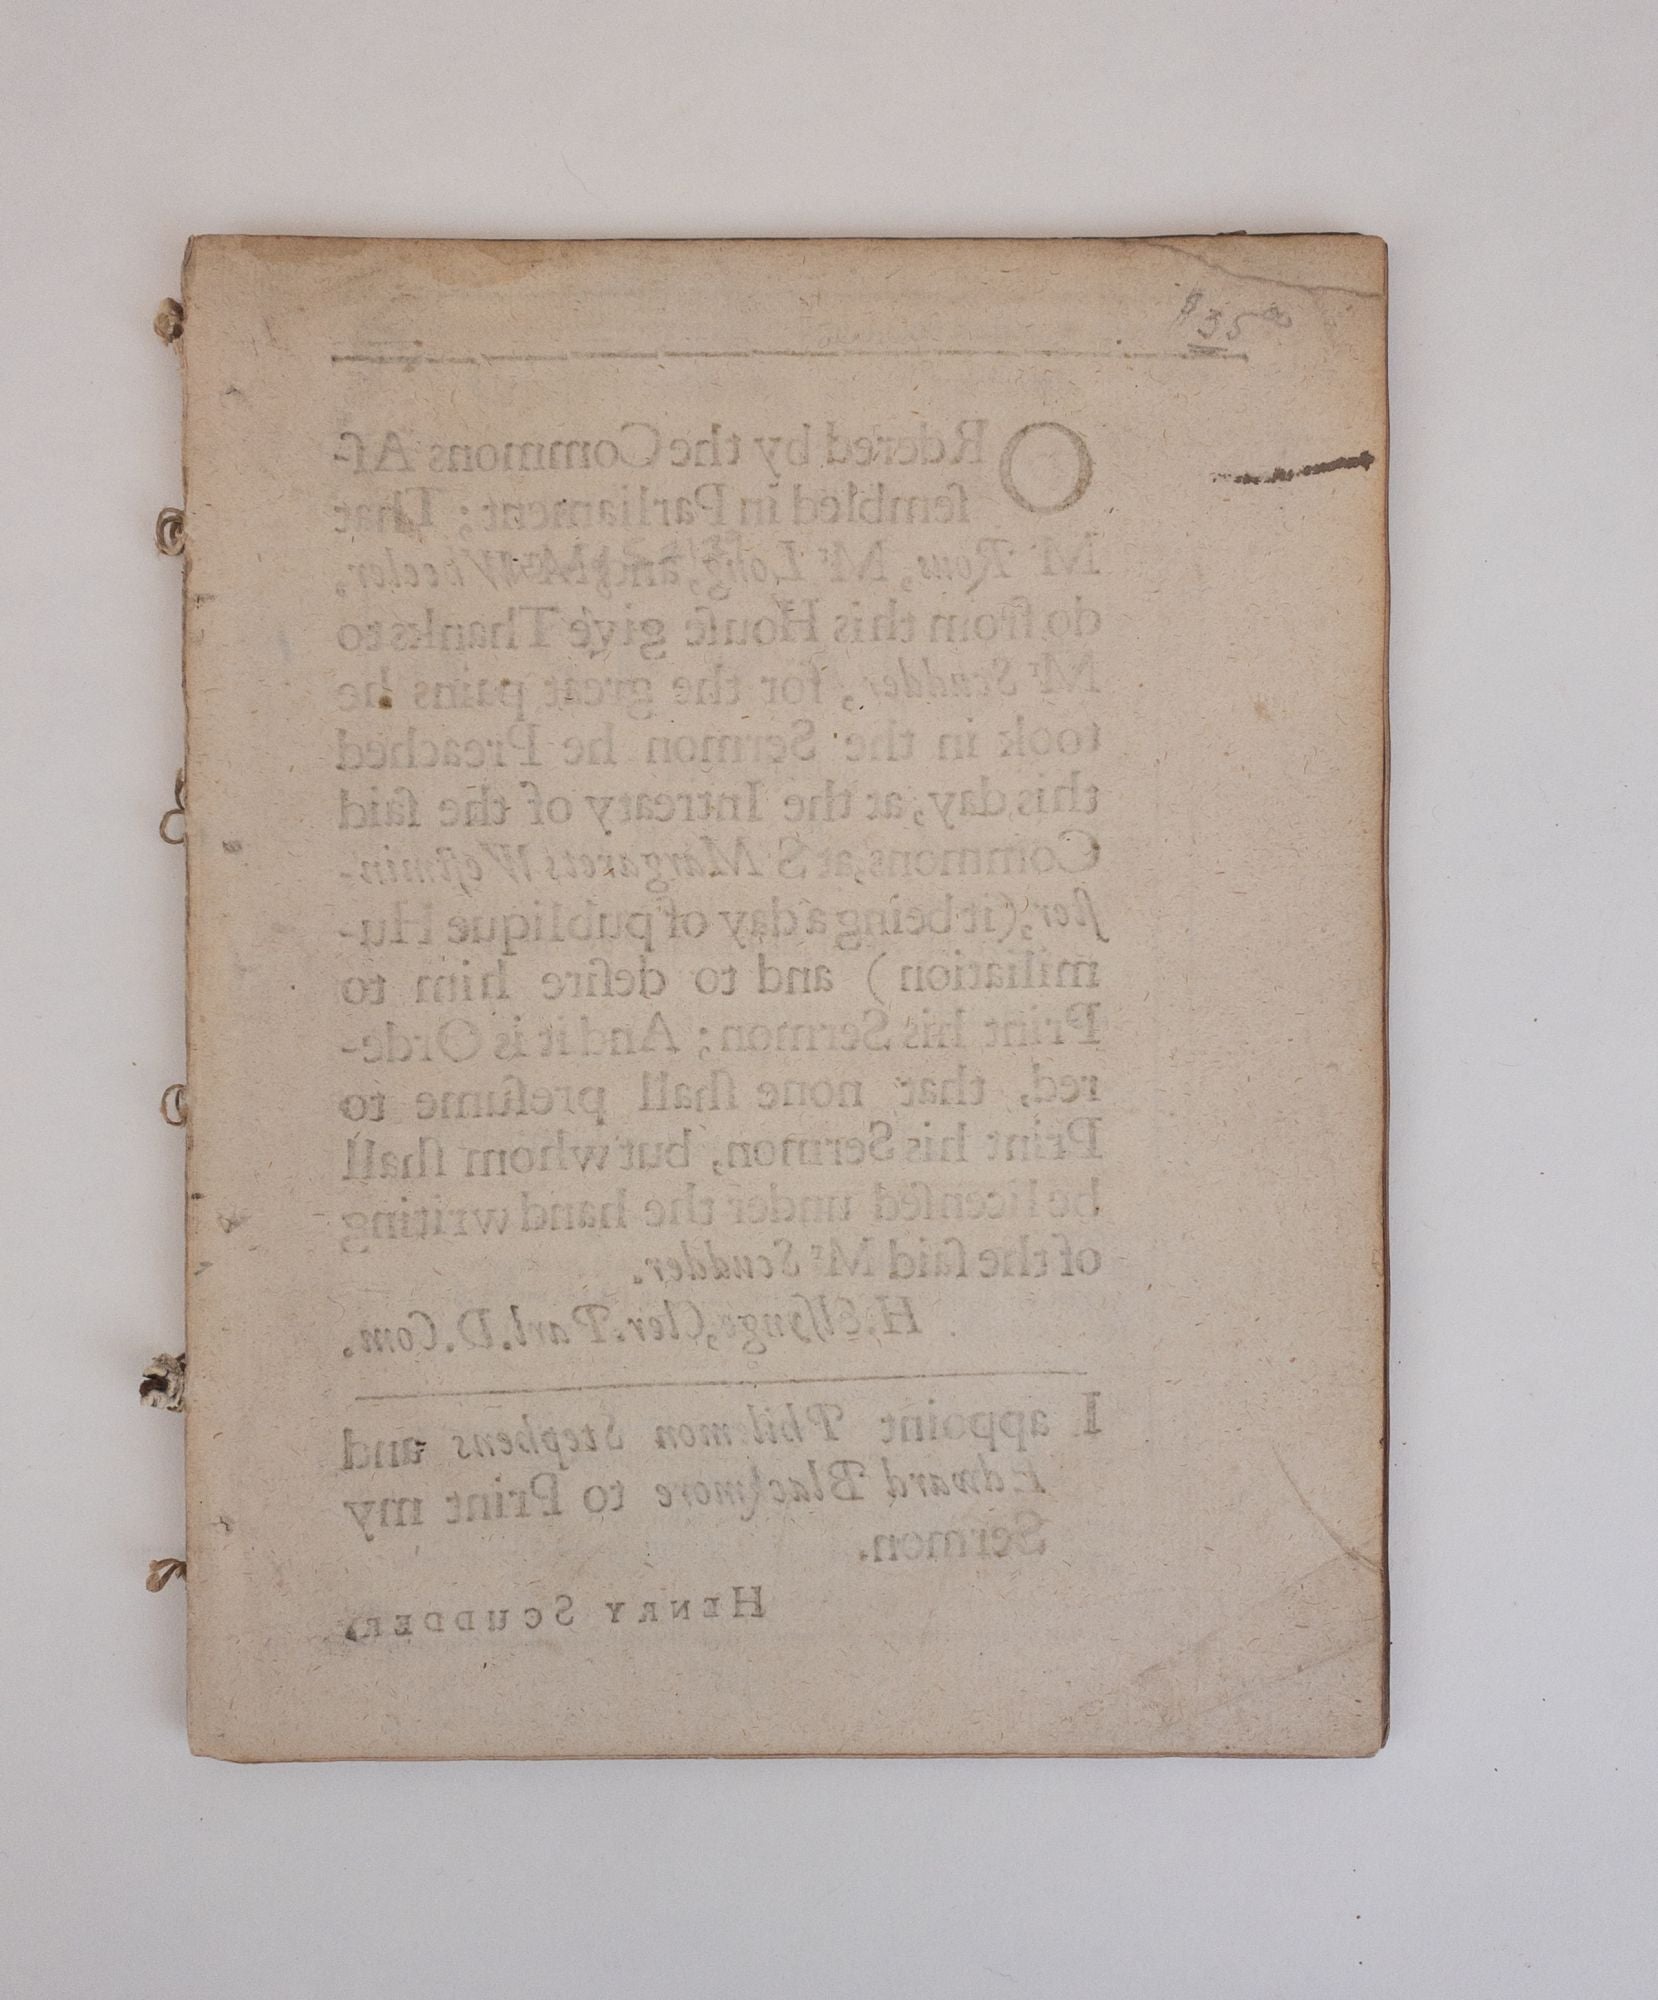 $35 00
ORdered by the Commons Aſ-
ſembled in Parliament; That
Mr Rous, Mr Long, and Mr Wheeler,
do from this Houſe give Thanks to
Mr Scudder, for the great pains he
took in the Sermon he Preached
this day, at the Intreaty of the ſaid
Commons, at S Margarets Weſtmin-
ſter, (it being a day of publique Hu-
miliation) and to deſire him to
Print his Sermon; And it is Orde-
red, that none ſhall preſume to
Print his Sermon, but whom ſhall
be licenſed under the hand writing
of the ſaid Mr Scudder.
H. Elſynge, Cler. Parl. D. Com.
I appoint Philemon Stephens and
Edward Blackmore to Print my
Sermon.
HENRY SCUDDER